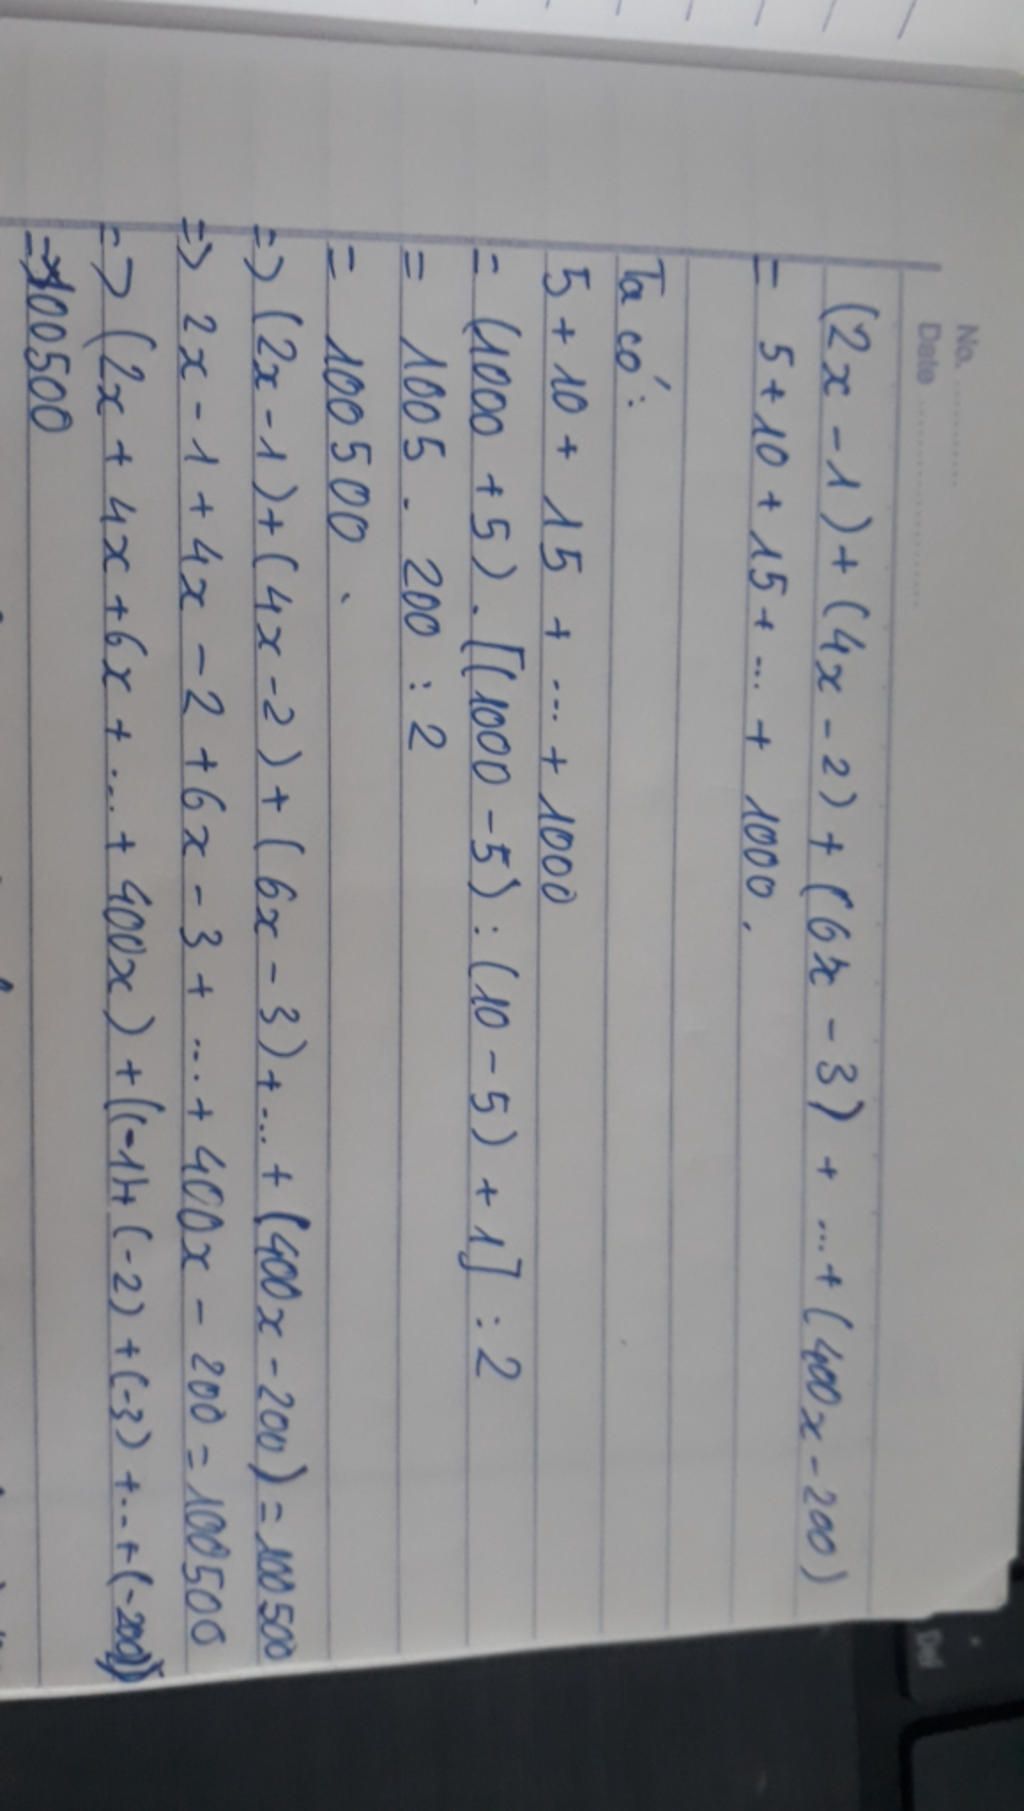 No. ............
Date ........................
(2x - 1) + (4x - 2) + (6x - 3) + ... + (400x - 200)
= 5 + 10 + 15 + ... + 1000.
Ta có:
5 + 10 + 15 + ... + 1000
= (1000 + 5) . [(1000 - 5) : (10 - 5) + 1] : 2
= 1005 . 200 : 2
= 100500.
=> (2x - 1) + (4x - 2) + (6x - 3) + ... + (400x - 200) = 100500
=> 2x - 1 + 4x - 2 + 6x - 3 + ... + 400x - 200 = 100500
=> (2x + 4x + 6x + ... + 400x) + ((-1) + (-2) + (-3) + ... + (-200))
= 100500
Del